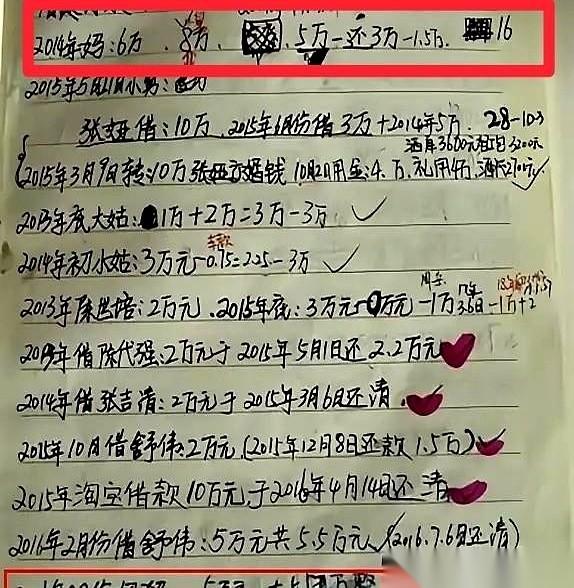 2014年妈:6万. 8万. 5万-还3万-1.5万. 16
2015年5月21日小舅:
张娅借:10万. 2015年6月份借3万+2014年5万. 28-10=3
酒席3600元 3200元
2015年3月9日转:10万张娅京婚钱 10月2日用金:4.万. 礼用4万. 酒2700元
2013年底大姑:1万+2万=3万-3万
2014年初小姑:3万元-0.75=2.25-3万
2013年陈 培:2万元.2015年底:3万元 万元-1万 -1万+2
年借陈代强:2万元于2015年5月1日还2.2万元
2014年借张吉清:2万元于2015年3月6日还清.
2015年10月借舒伟:2万元.(2015年12月8日还款1.5万)
2015年淘宝借款10万元.于2016年4月14日还清
2016年2月份借舒伟:5万元共5.5万元(2016.7.6日还清)